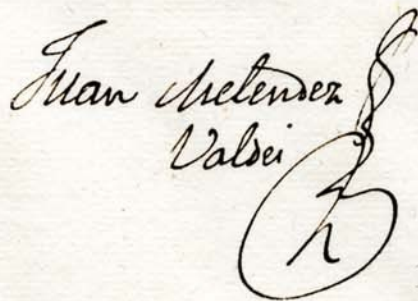 Juan Melendez
Valdes